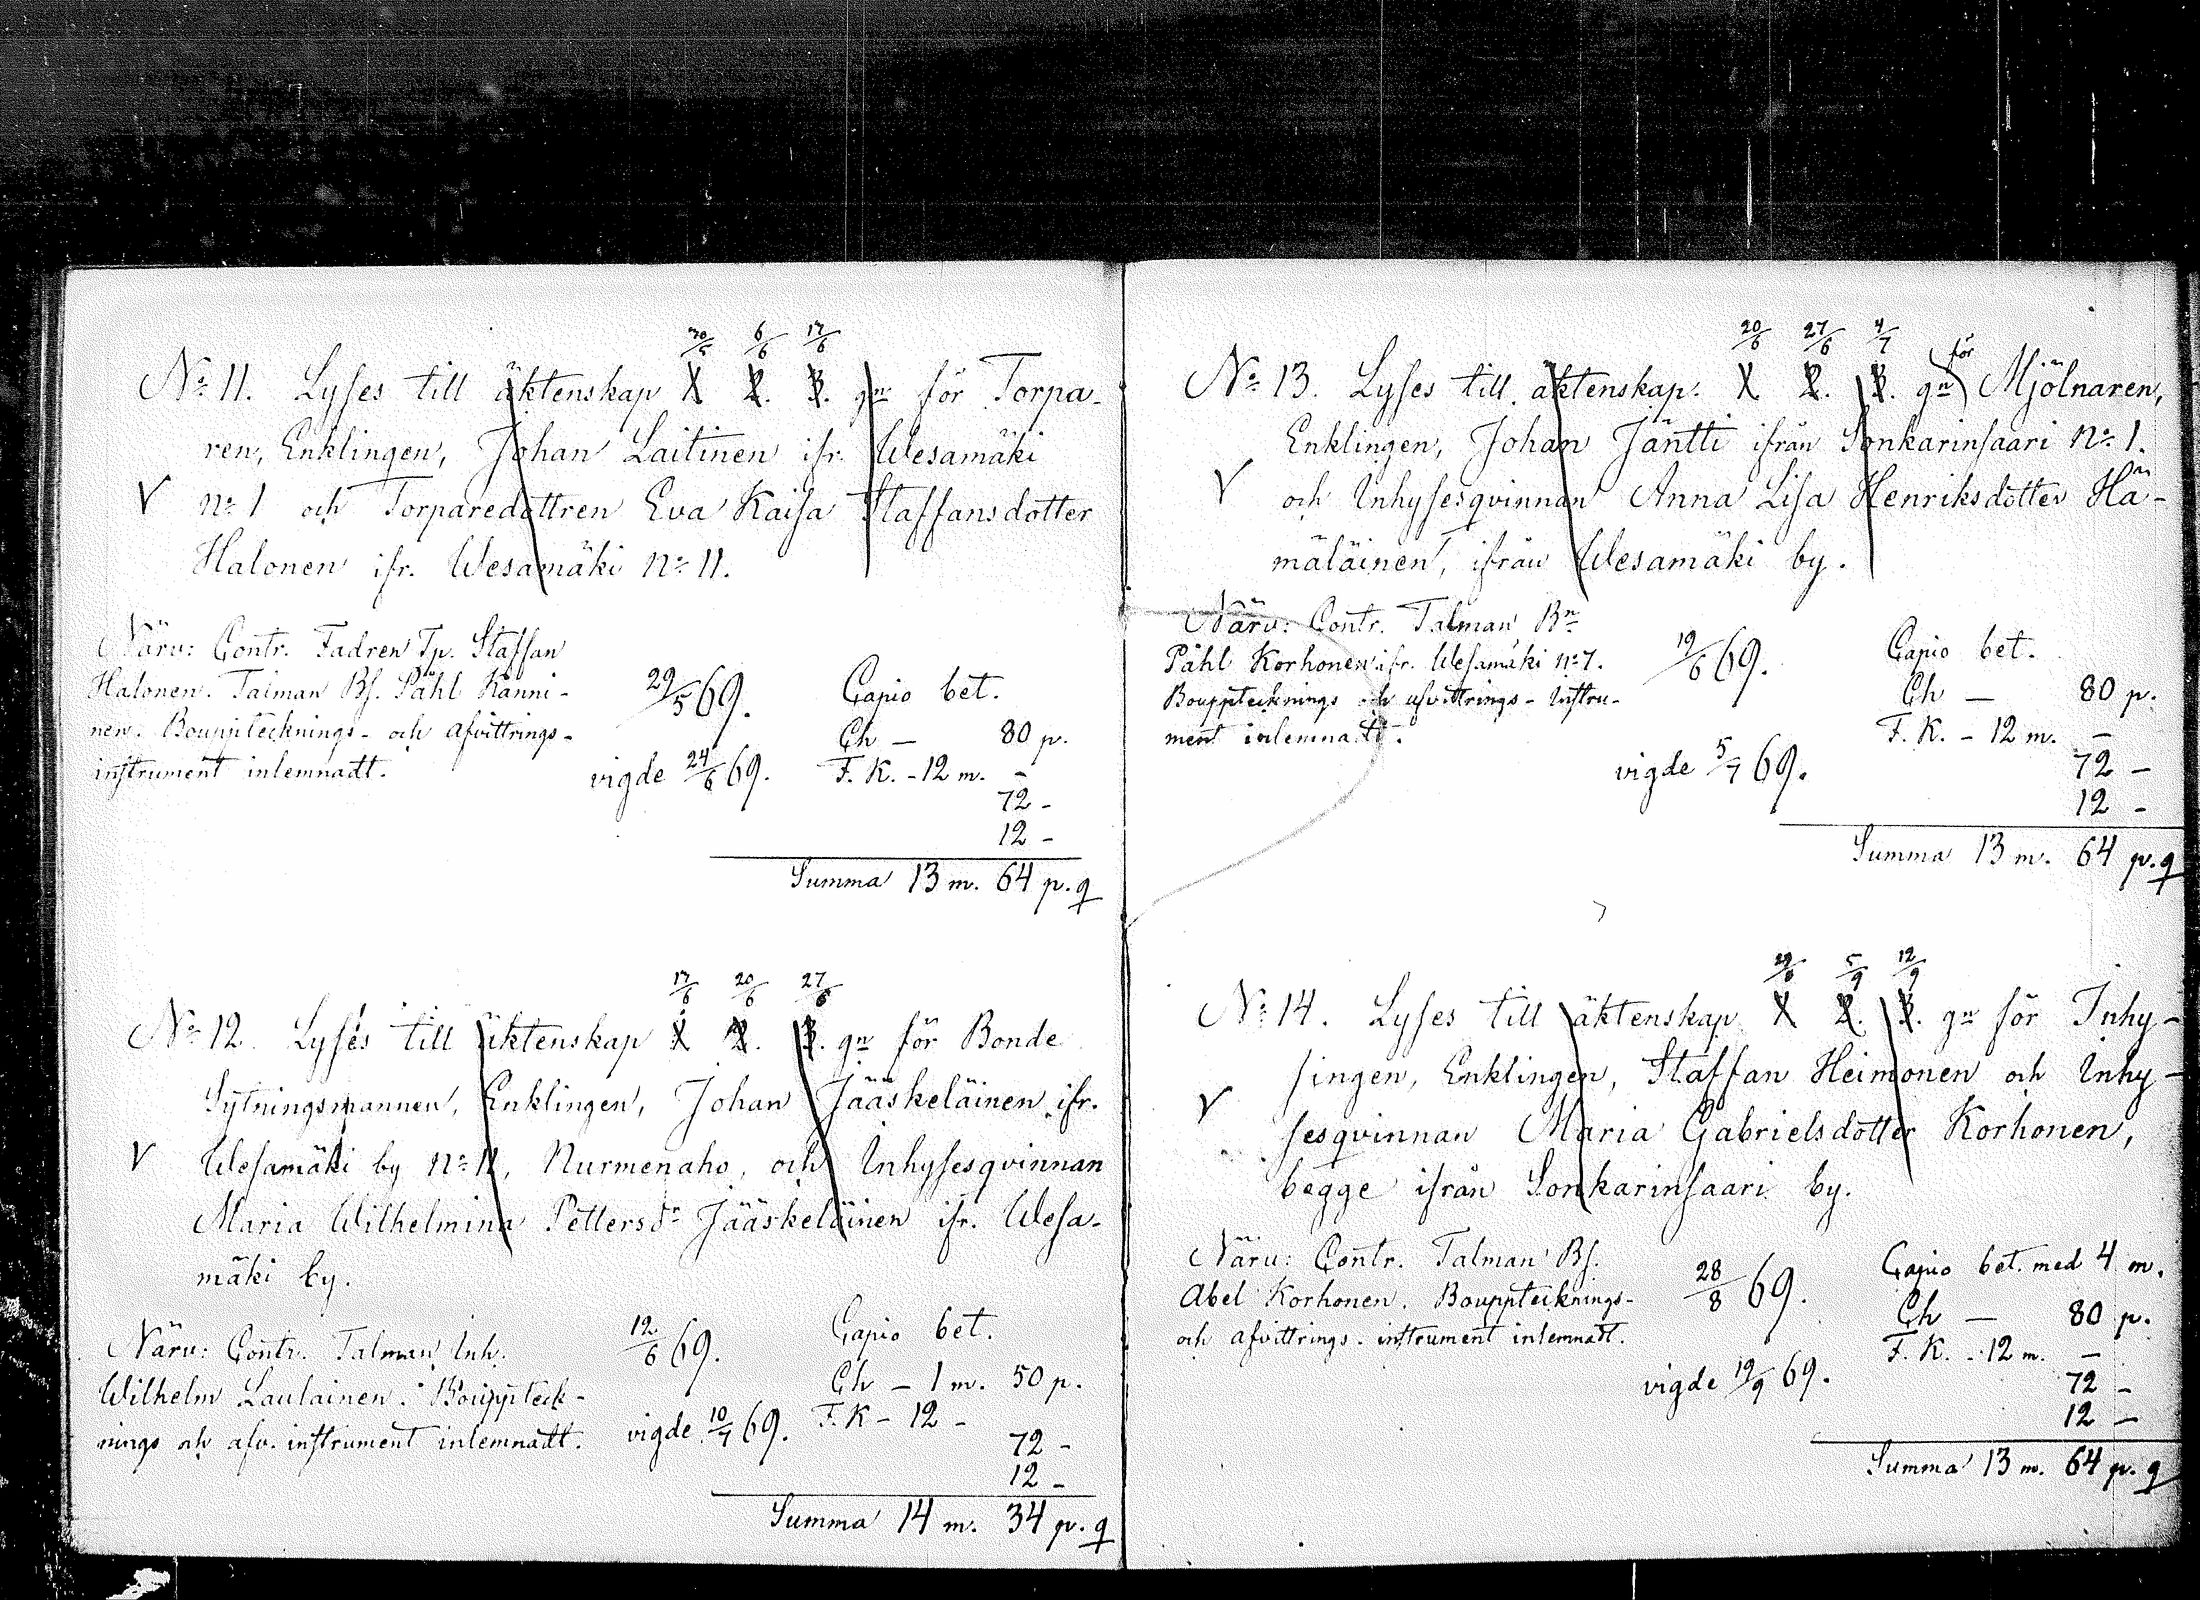 30/5 6/6 13/6
No 11. Lyses till äktenskap 1. 2. 3. gn för Torpa-
ren, Enklingen, Johan Laitinen ifr. Wesamäki
V no 1 och Torparedottren Eva Kaisa Staffansdotter
Halonen ifr. Wesamäki no 11.
Närv: Contr. Fadren Tp. Staffan
Halonen. Talman Bs. Påhl Ränni-
nen. Bouppteknings- och afvittrings-
instrument inlemnadt.
29/5 69.
vigde 24/6 69.
Capio bet.
Ch — 80 p.
F. K. - 12 m. —
72 -
12 -
Summa 13 m. 64 p. q
13/6 20/6 27/6
No 12. Lyses till äktenskap 1. 2. 3. gn för Bonde
Sytningsmannen, Enklingen, Johan Jääskeläinen ifr.
V Wesamäki by no 11, Nurmenaho, och Inhysesqvinnan
Maria Wilhelmina Pettersdr Jääskeläinen ifr. Wesa-
mäki by.
Närv: Contr. Talman Inh.
Wilhelm Laulainen. Bouppteck-
nings och afv. instrument inlemnadt.
12/6 69.
vigde 10/7 69.
Capio bet.
Ch — 1 m. 50 p.
F. K — 12 -
72 -
12 -
Summa 14 m. 34 p. q
20/6 27/6 4/7
No 13. Lyses till äktenskap. 1. 2. 3. gn för Mjölnaren,
Enklingen, Johan Jäntti ifrån Sonkarinsaari no 1.
V och Inhysesqvinnan Anna Lisa Henriksdotter Hä-
mäläinen, ifrån Wesamäki by.
Närv: Contr. Talman Bn
Påhl Korhonen ifr. Wesamäki no 7.
Bouppteknings och afvittrings- Instru-
ment inlemnadt.
19/6 69.
vigde 5/7 69.
Capio bet.
Ch — 80 p.
F. K. - 12 m. —
72 —
12 -
Summa 13 m. 64 p. q
29/8 5/9 12/9
No 14. Lyses till äktenskap 1. 2. 3. gn för Inhy-
singen, Enklingen, Staffan Heimonen och Inhy-
V sesqvinnan Maria Gabrielsdotter Korhonen,
begge ifrån Sonkarinsaari by.
Närv: Contr. Talman Bs.
Abel Korhonen. Bouppteknings-
och afvittrings. instrument inlemnadt.
28/8 69.
vigde 19/9 69.
Capio bet. med 4 m.
Ch — 80 p.
F. K. - 12 m. —
72 -
12 —
Summa 13 m. 64 p. q